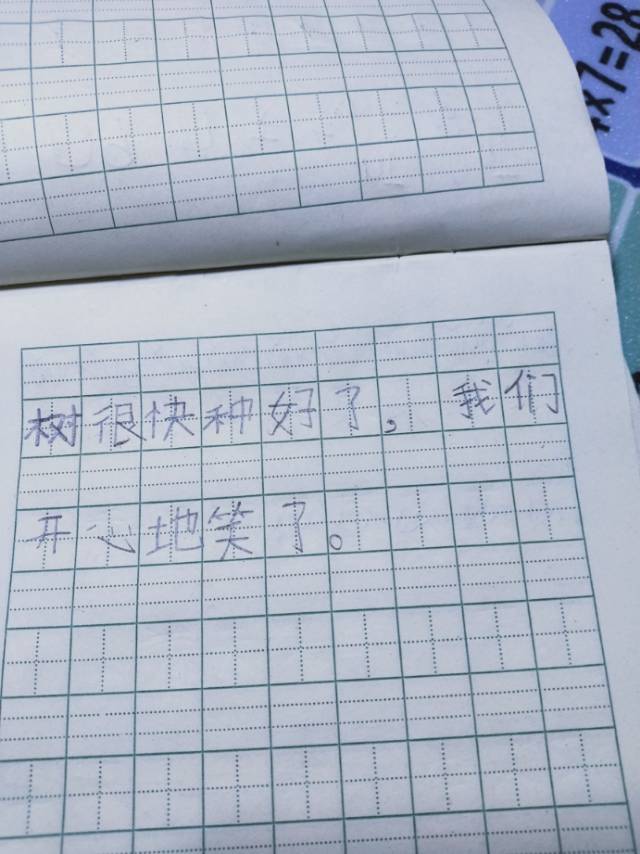 4x7=28
树很快种好了，我们
开心地笑了。